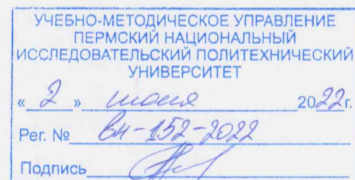 УЧЕБНО-МЕТОДИЧЕСКОЕ УПРАВЛЕНИЕ
ПЕРМСКИЙ НАЦИОНАЛЬНЫЙ
ИССЛЕДОВАТЕЛЬСКИЙ ПОЛИТЕХНИЧЕСКИЙ
УНИВЕРСИТЕТ
« 2 » июня 2022г.
Рег. № вн-152-2022
Подпись